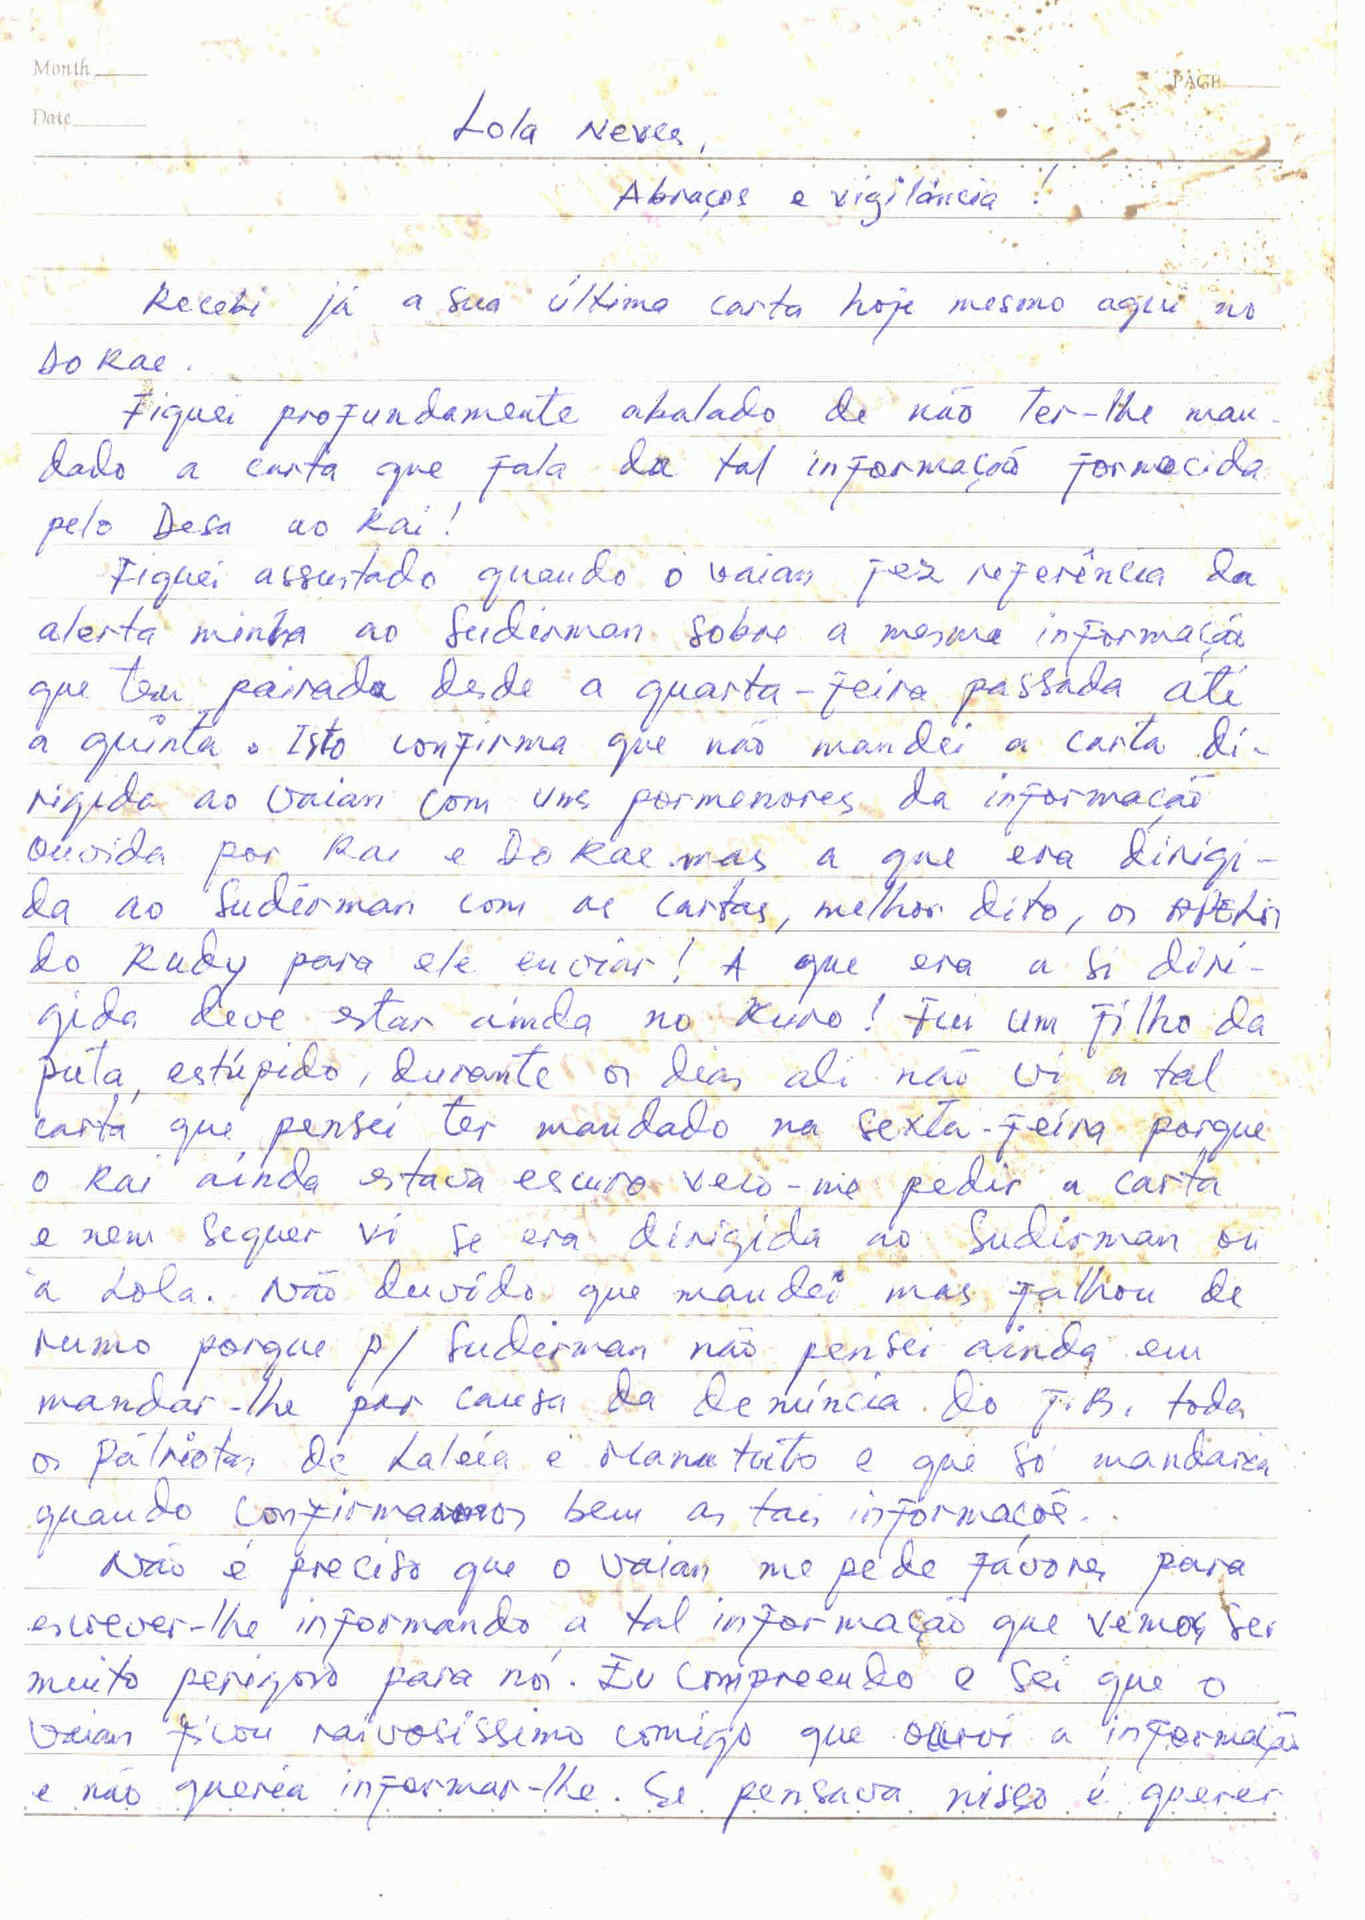 Month
PAGE
Date
Lola Neves,
Abraços e vigilância !
Recebi já a sua última carta hoje mesmo aqui no
Do Rae.
Fiquei profundamente abalado de não ter-lhe man-
dado a carta que fala da tal informação fornecida
pelo Desa ao Rai!
Fiquei assustado quando o vaian fez referência da
alerta minha ao Sudirman sobre a mesma informação
que tem pairada desde a quarta-feira passada até
a quinta. Isto confirma que não mandei a carta di-
rigida ao vaian com uns pormenores da informação
ouvida por Rai e Do Rae mas a que era dirigi-
da ao Sudirman com as cartas, melhor dito, os
do Rudy para ele enviar! A que era a si diri-
gida deve estar ainda no Kuro! Fui um filho da
puta, estúpido, durante os dias ali não vi a tal
carta que pensei ter mandado na sexta-feira porque
o Rai ainda estava escuro veio-me pedir a carta
e nem sequer vi se era dirigida ao Sudirman ou
à Lola. Não duvido que mandei mas falhou de
rumo porque p/ Sudirman não pensei ainda em
mandar-lhe por causa da denúncia do F.B. toda
os Pátriotas de Laleia e Manatuto e que só mandaria
quando confirmamos bem as tais informaçõe.
Não é preciso que o vaian me pede favores para
escrever-lhe informando a tal informação que vemos ser
muito perigoso para nós. Eu compreendo e sei que o
vaian ficou raivosissimo comigo que ouvi a informação
e não queria informar-lhe. Se pensava nisso é querer